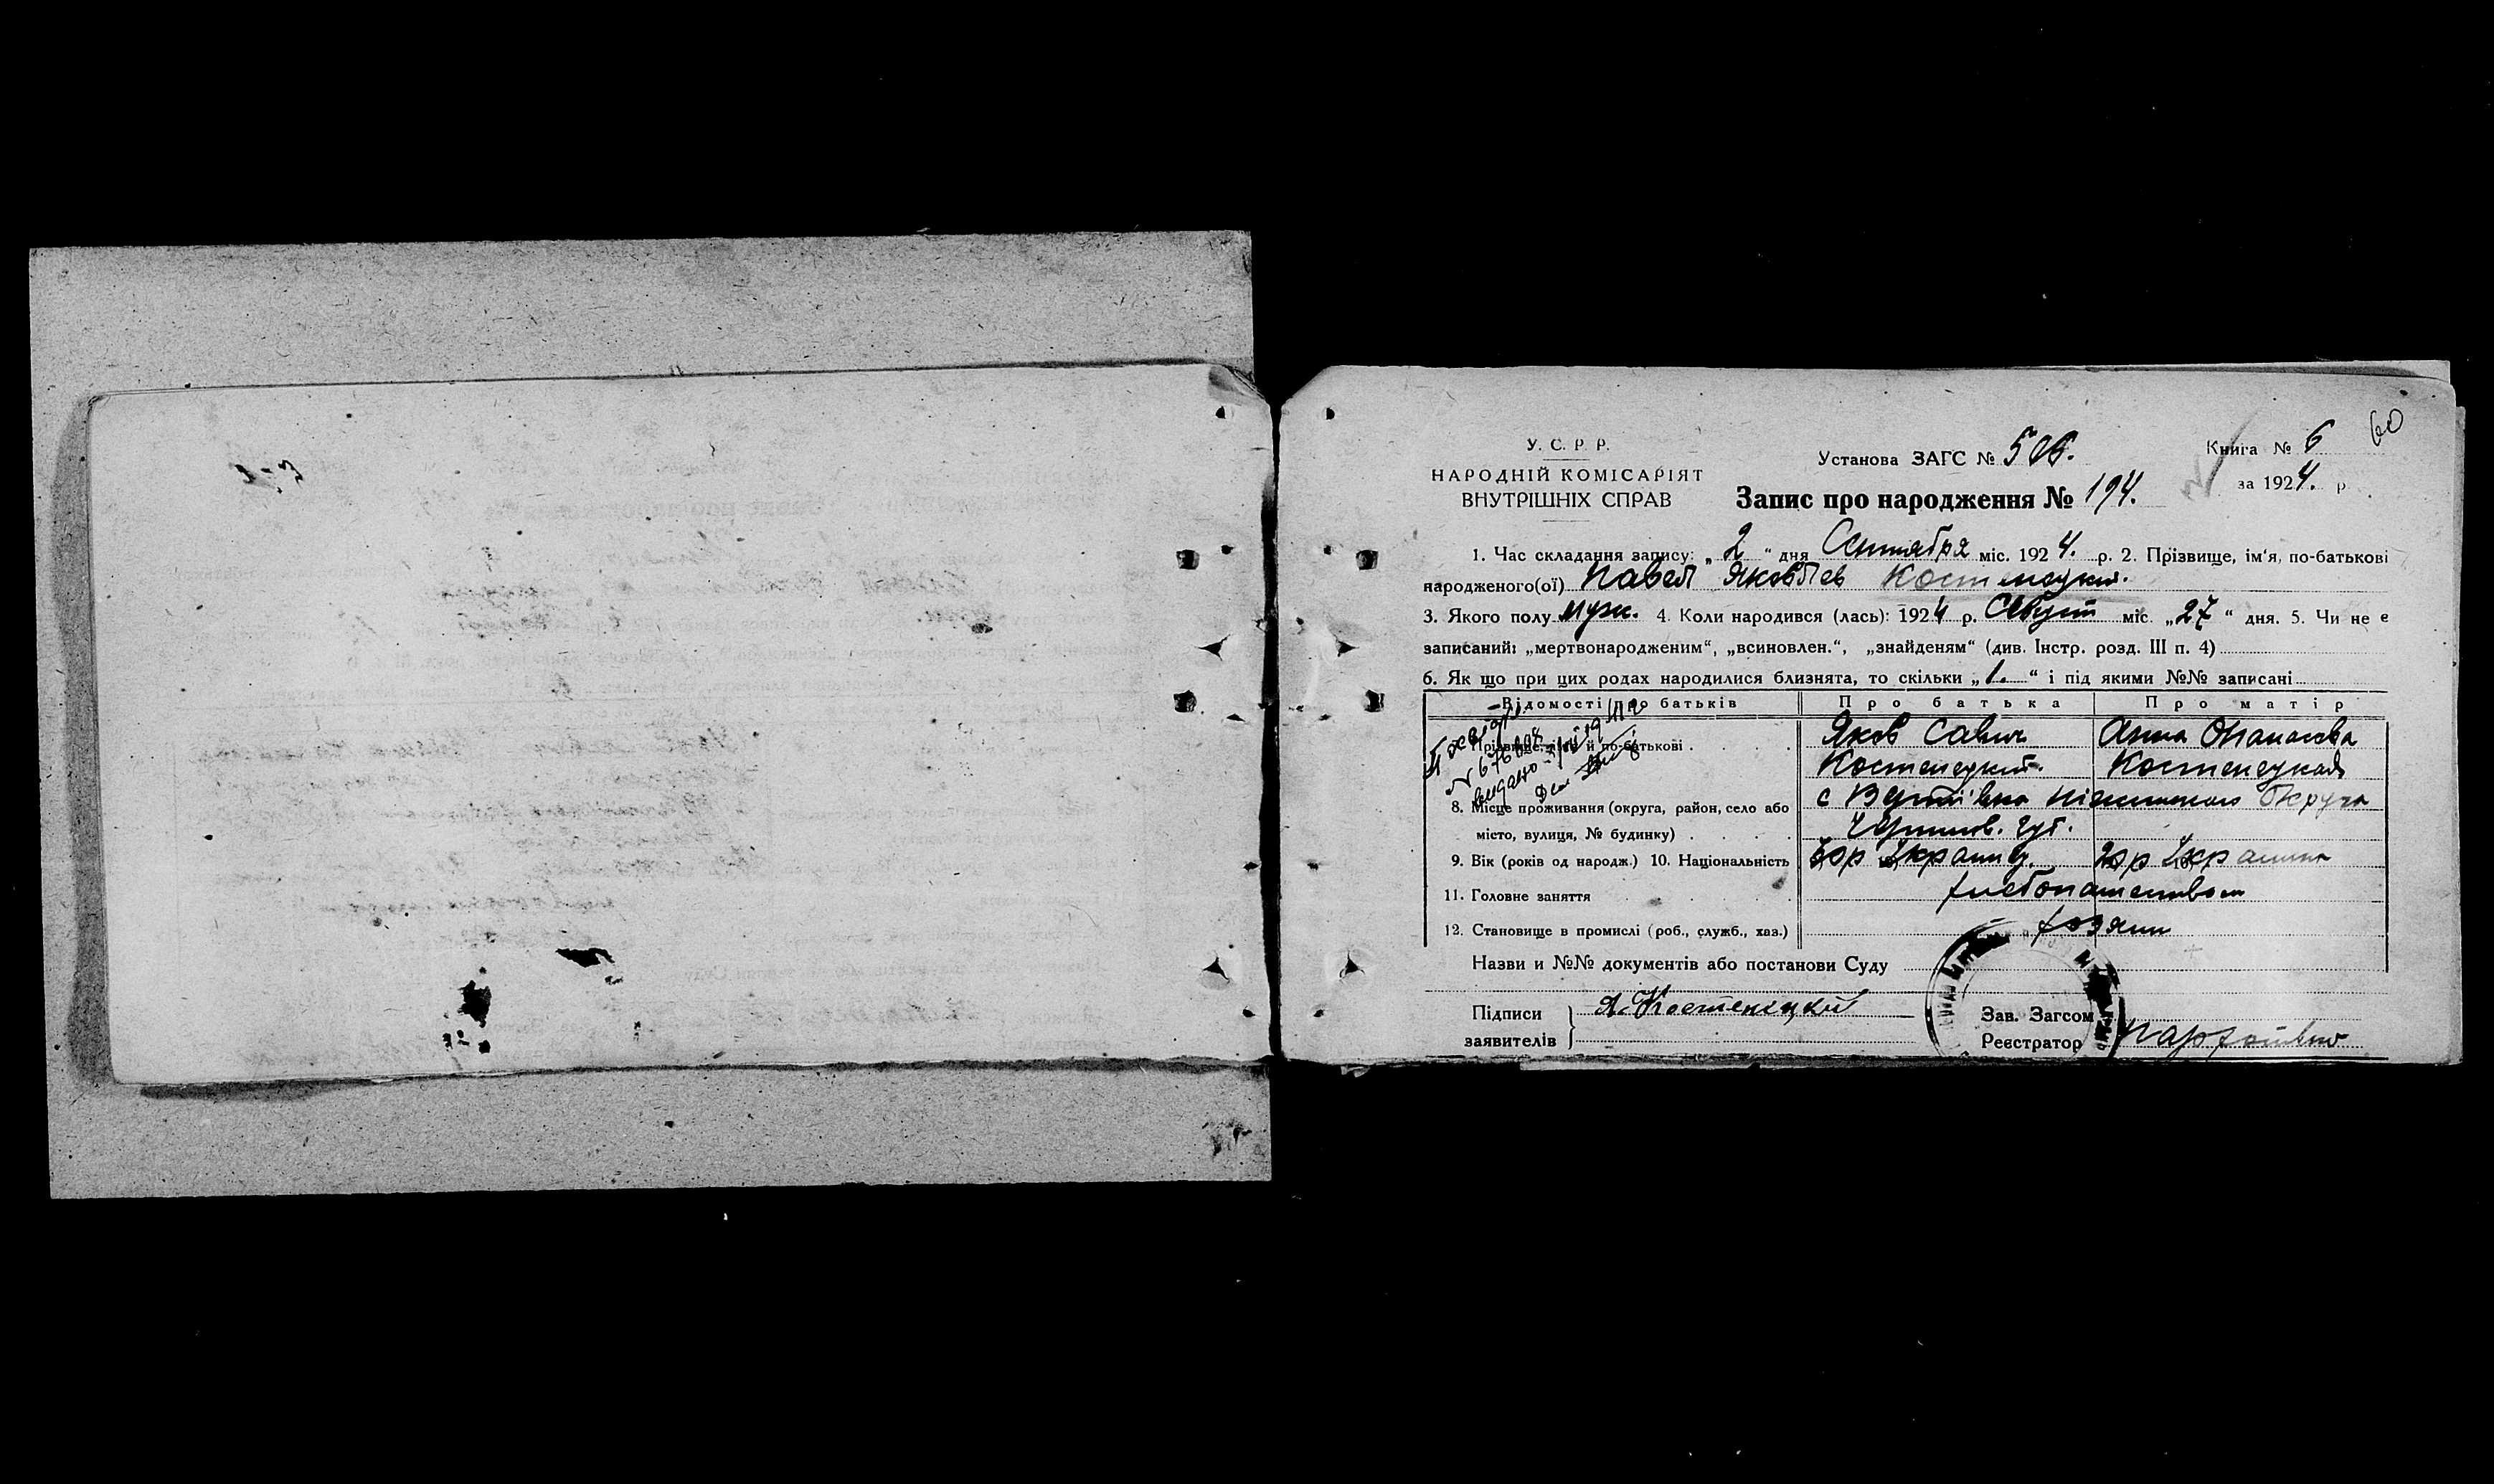 60
У. С. Р. Р.
НАРОДНІЙ КОМІСАРІЯТ
ВНУТРІШНІХ СПРАВ
Установа ЗАГС №
Запис про народження № 194.
Книга № 6
за 1924. р
1. Час складання запису: „ 2 “ дня Сентября міс. 1924. р. 2. Прізвище, ім'я, по-батькові
народженого(ої) Павел Яковлев Костенецкий.
3. Якого полу муж. 4. Коли народився (лась): 1924 р. Август міс. „27“ дня. 5. Чи не є
записаний: „мертвонародженим“, „всиновлен.“, „знайденям“ (див. Інстр. розд. III п. 4)
6. Як що при цих родах народилися близнята, то скільки „1.“ і під якими №№ записані
Відомості про батьків Про батька Про матір
Прізвище, ім'я й по-батькові Яков Савич Анна Опанасова
Костенецкий. Костенецкая
8. Місце проживання (округа, район, село або с Вертіївка Ніжинського Округа
місто, вулиця, № будинку) Чернигов. губ.
9. Вік (років од народж.) 10. Національність
11. Головне заняття хлебопашеством
12. Становище в промислі (роб., служб., хаз.) хозяин
Назви и №№ документів або постанови Суду
Підписи
заявителів
Я. Костенецкий
Зав. Загсом
Реєстратор